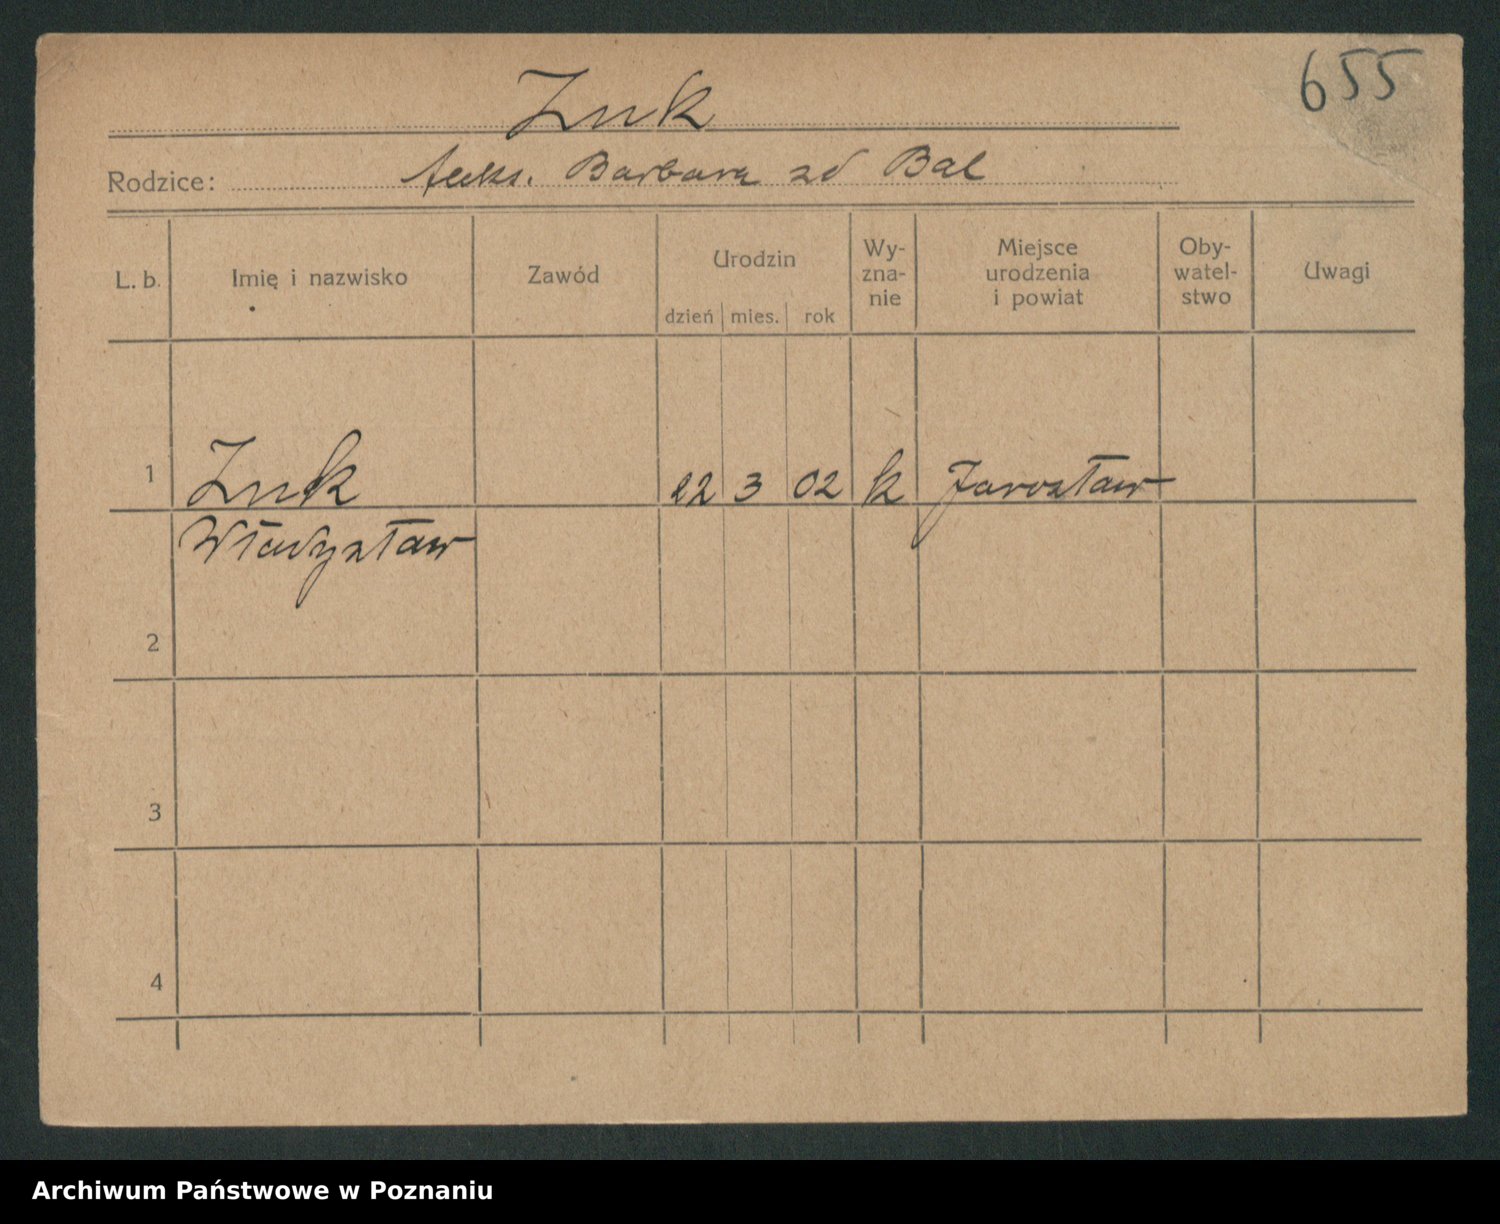 655
Zuk
Rodzice: Aleks. Barbara zd Bal
L. b. Imię i nazwisko Zawód Urodzin dzień mies. rok Wy-zna-nie Miejsce urodzenia i powiat Oby-watel-stwo Uwagi
1 Zuk 22 3 02 k Jarosław
Władysław
2
3
4
Archiwum Państwowe w Poznaniu